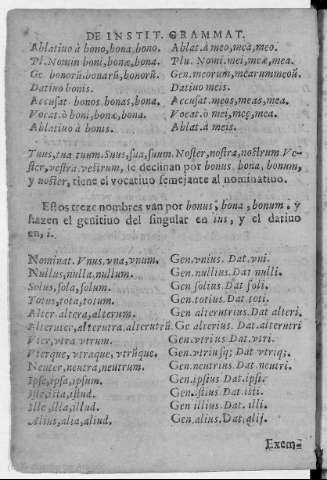 DE INSTIT. GRAMMAT.
Ablatiuo à bono, bona, bono. Ablat. à meo, mea, meo.
Pl. Nomin boni, bonæ, bona. Plu. Nomi. mei, meæ, mea.
Ge bonorũ. bonarũ, bonorũ. Gen. meorum, mearum meoũ.
Datiuo bonis. Datiuo meis.
Accusat bonos bonas, bona. Accusat. meos, meas, mea.
Vocat. ò boni, bonæ, bona. Vocat. ò mei, meę, mea.
Ablatiuo à bonis. Ablat. à meis.
Tuus, tua tuum. Suus, sua, suum. Noster, nostra, nostrum Ve-
ster, vestra, vestrum, se declinan por bonus, bona, bonum,
y noster, tiene el vocatiuo semejante al nominatiuo.
Estos treze nombres van por bonus, bona, bonum. y
hazen el genitiuo del singular en ius, y el datiuo
en, i.
Nominat. Vnus. vna, vnum. Gen. vnius. Dat. vni.
Nullus, nulla. nullum. Gen. nullius. Dat nulli.
Solus, sola, solum. Gen. solius Dat soli.
Totus, tota, totum. Gen. totius Dat. toti.
Alter altera, alterum. Gen alterutrius Dat alteri.
Alteruter, alterutra, alterutrũ. Ge alterius Dat. alterutri
Vter, vtra vtrum. Gen. vtrius Dat. vtri.
Vterque, vtraque, vtrũque. Gen. vtriusq; Dat vtriq;.
Neuter, neutra, neutrum. Gen. neutrius Dat neutri.
Ipse, ipsa, ipsum. Gen. ipsius Dat. ipsi.
Iste, ista, istud. Gen. istius Dat. isti.
Ille, illa, illud. Gen illius Dat. illi.
Alius, alia, aliud. Gen. alius Dat. alij.
Exem-